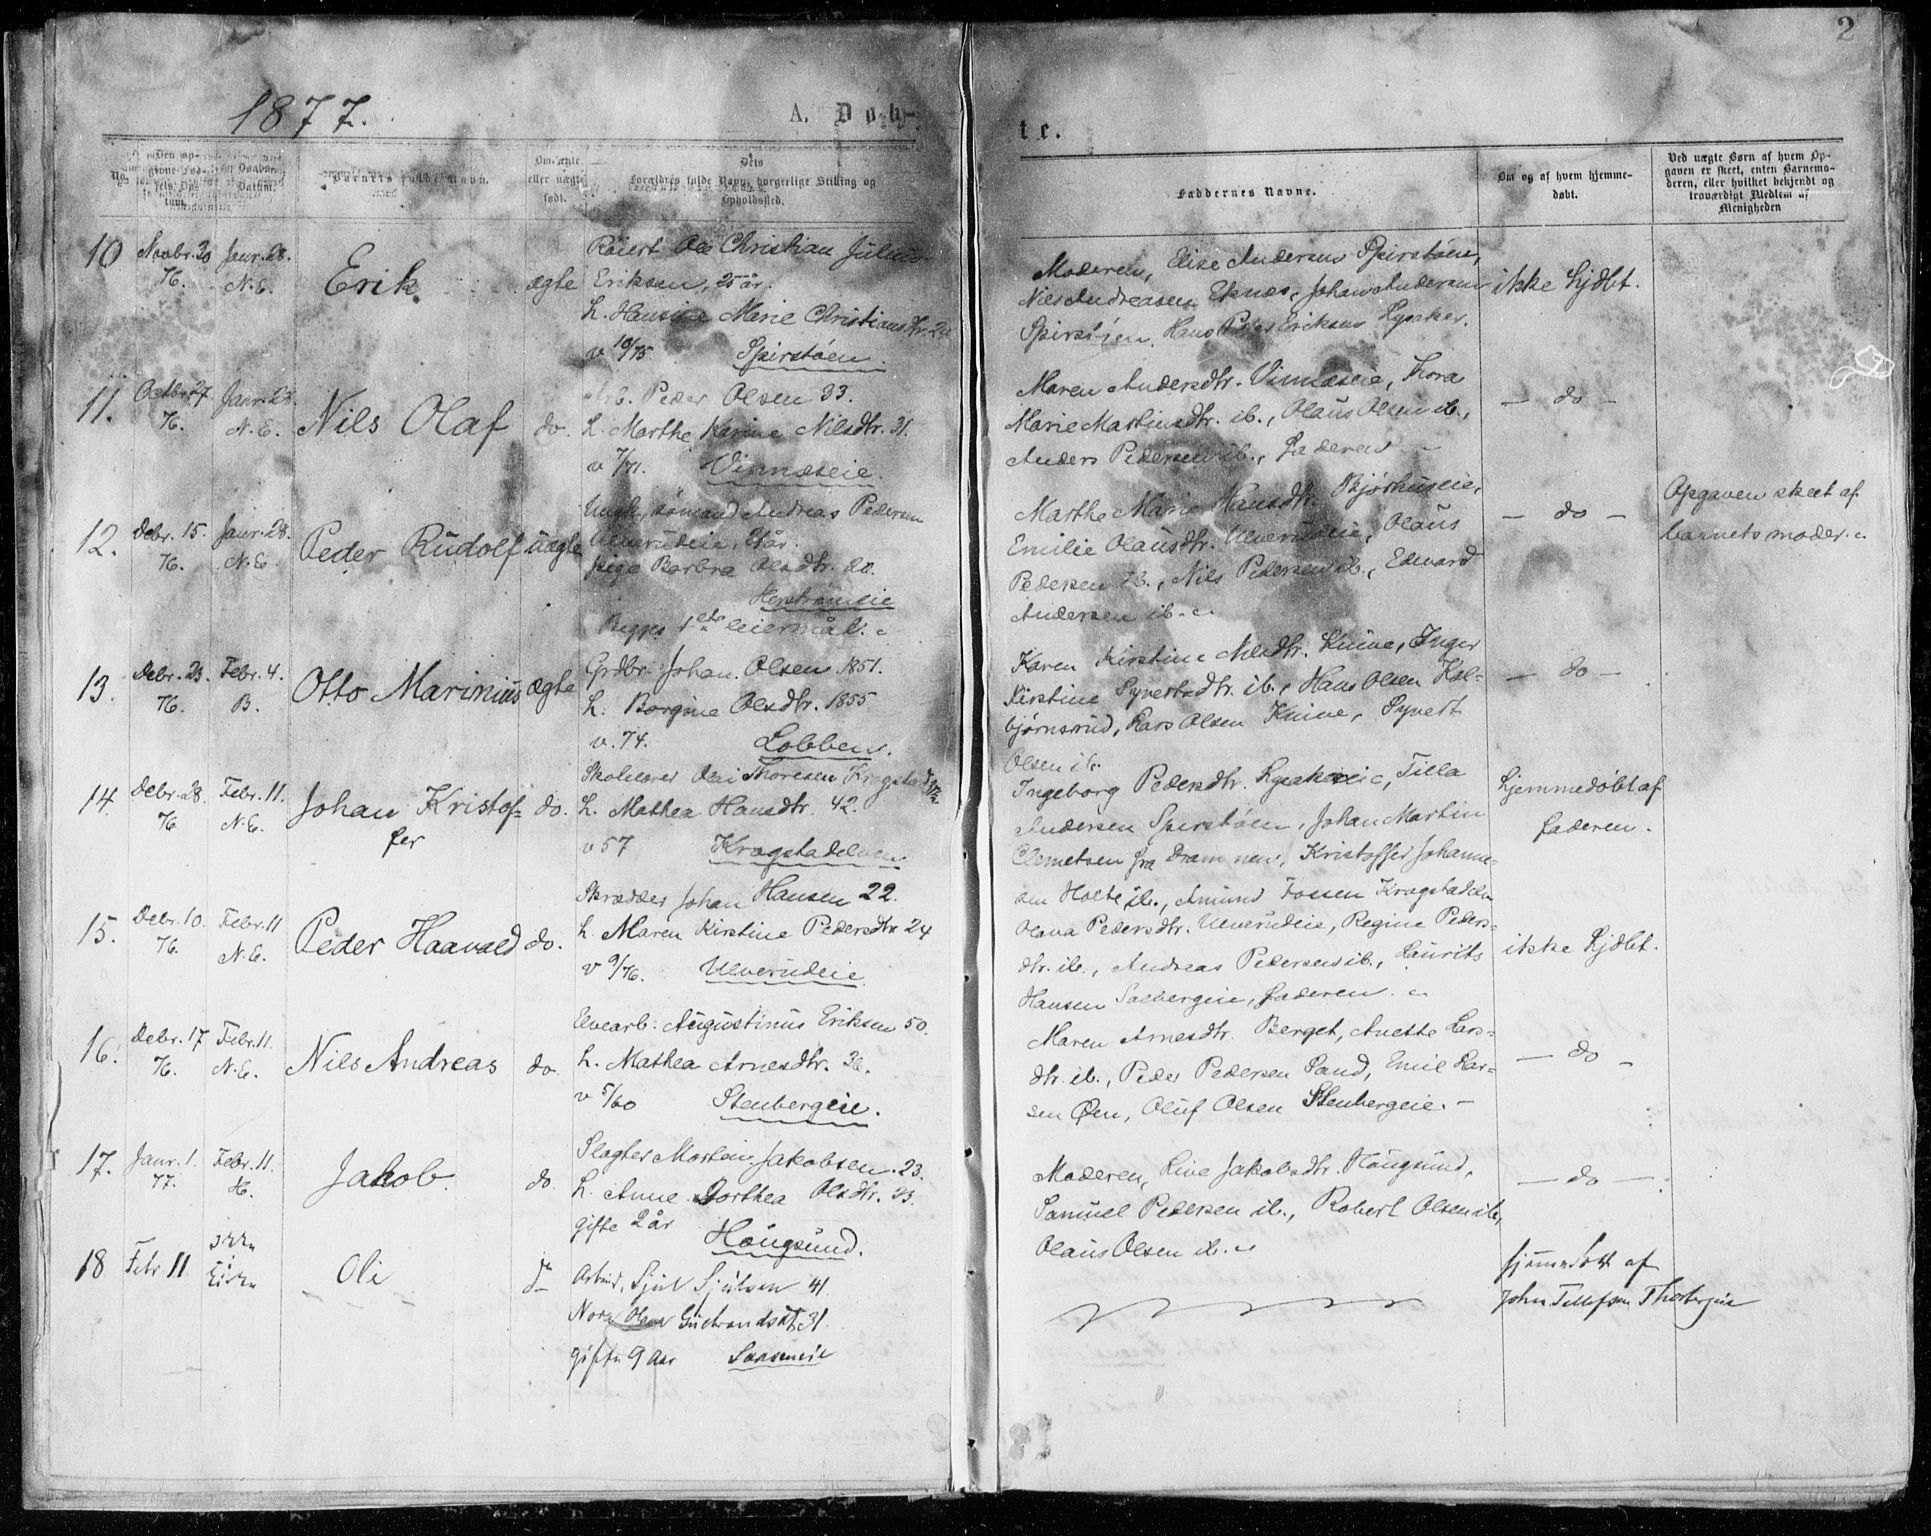 2
1877.
A. Døb-
te.
No.
Den op-
givne Fød-
sels Da-
tum.
Daabens
Datum.
Barnets fulde Navn.
Om ægte
eller uægte
født.
Dets
Forældres fulde Navn, borgerlige Stilling og
Opholdssted.
Faddernes Navne.
Om og af hvem hjemme-
døbt.
Ved uægte Børn af hvem Op-
gaven er skeet, enten Barnemo-
deren, eller hvilket bekjendt og
troværdigt Medlem af
Menigheden
10
Novbr. 20
76.
Janr. 28.
N.E.
Erik
ægte
Ole Christian Julius
Eriksen, 25 år.
h. Hansine Marie Christiansdtr. 24
v 10/75 Spirstøen.
Moderen, Elise Andersen Spirstøen,
Nils Andreasen Eknes, Johan Andersen
Spirstøen, Hans Peter Eriksen Lysaker.
ikke hjdbt.
11.
Octbr. 27
76.
Janr. 28.
N.E.
Nils Olaf
do.
Arb. Peder Olsen 33.
h. Marthe Karine Nilsdtr. 31.
v 7/71. Vinnæseie.
Maren Andersdtr. Vinnæseie, Thora
Marie Martinsdtr. ib., Olaus Olsen ib.,
Anders Pedersen ib., Faderen
— do —
12.
Debr. 15.
76.
Janr. 28.
N.E.
Peder Rudolf
uægte
Ungk., sömand Andreas Pedersen
Ulverudeie, 21 år.
pige Barbra Olsdtr. 20.
Herstrømeie
Begges 1ste leiermål.
Marthe Marie Hansdtr. Bjørhuseie,
Emilie Olausdtr. Ulverudeie, Olaus
Pedersen ib., Nils Pedersen ib., Edward
Andersen ib.
— do —
Opgaven skeet af
barnets moder.
13.
Debr. 23.
76.
Febr. 4.
B.
Otto Marinius
ægte
Grdbr. Johan Olsen 1851.
h. Borgine Olsdtr. 1855
v. 74. Lobben.
Karen Kirstine Nilsdtr. Knive, Inger
Kirstine Syvertsdtr. ib., Hans Olsen Kol-
bjørnsrud, Lars Olsen Knive, Syvert
Olsen ib.
— do —
14.
Debr. 28.
76
Febr. 11.
N.E.
Johan Kristof-
fer
do.
Skolelærer Oli Thoresen Krogstad
h. Mathea Hansdtr. 42.
v 57 Krogstadelven
Ingeborg Pedersdtr. Lysakereie, Tilla
Andersen Spirstøen, Johan Martin
Clemetsen fra Drammen, Kristoffer Johanne-
sen Holte ib., Amund Fossen Krogstadelv
hjemmedøbt af
faderen.
15.
Debr. 10.
76.
Febr. 11
N.E.
Peder Haavald
do.
Skrædder Johan Hansen 22.
h. Maren Kirstine Pedersdtr 24
v 9/76. Ulverudeie
Olava Pedersdtr. Ulverudeie, Regine Peders-
dtr. ib., Andreas Pedersen ib., Laurits
Hansen Solbergeie, faderen.
ikke hjdbt.
16.
Debr. 17
76.
Febr. 11.
N.E.
Nils Andreas
do.
Elvearb: Augustinus Eriksen 50.
h. Mathea Arnesdtr. 36.
v 5/60 Stenbergeie.
Maren Arnesdtr. Berget, Anette Lars-
dtr. ib., Peder Pedersen Sand, Emil Lar-
sen Øen, Oluf Olsen Stenbergeie. —
— do —
17.
Janr. 1.
77.
Febr. 11.
H.
Jakob
do.
Slagter Morten Jakobsen. 23.
h. Anne Dorthea Olsdtr. 23.
gifte 2 år Hougsund.
Moderen, Live Jakobsdtr. Hougsund,
Samuel Pedersen ib., Robert Olsen ib.,
Olaus Olsen ib.
— do —
18
Febr 11
Oli
do
Arbeid. Sjul Sjulsen 41.
Nora Olava Gudbrandsdt 31.
gifte 9 Aar
hjemmedøbt af
John Tollefsen Thorbergeie